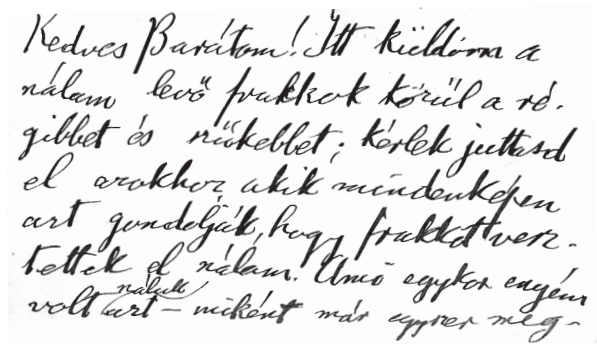 Kedves Barátom! Itt küldöm a
nálam levő frakkok közül a ré-
gibbet és szűkebbet; kérlek juttasd
el azokhoz, akik mindenképen
azt gondolják, hogy frakkot vesz-
tettek el nálam. Ami egykor enyém
náluk
volt azt – miként már egyszer meg-